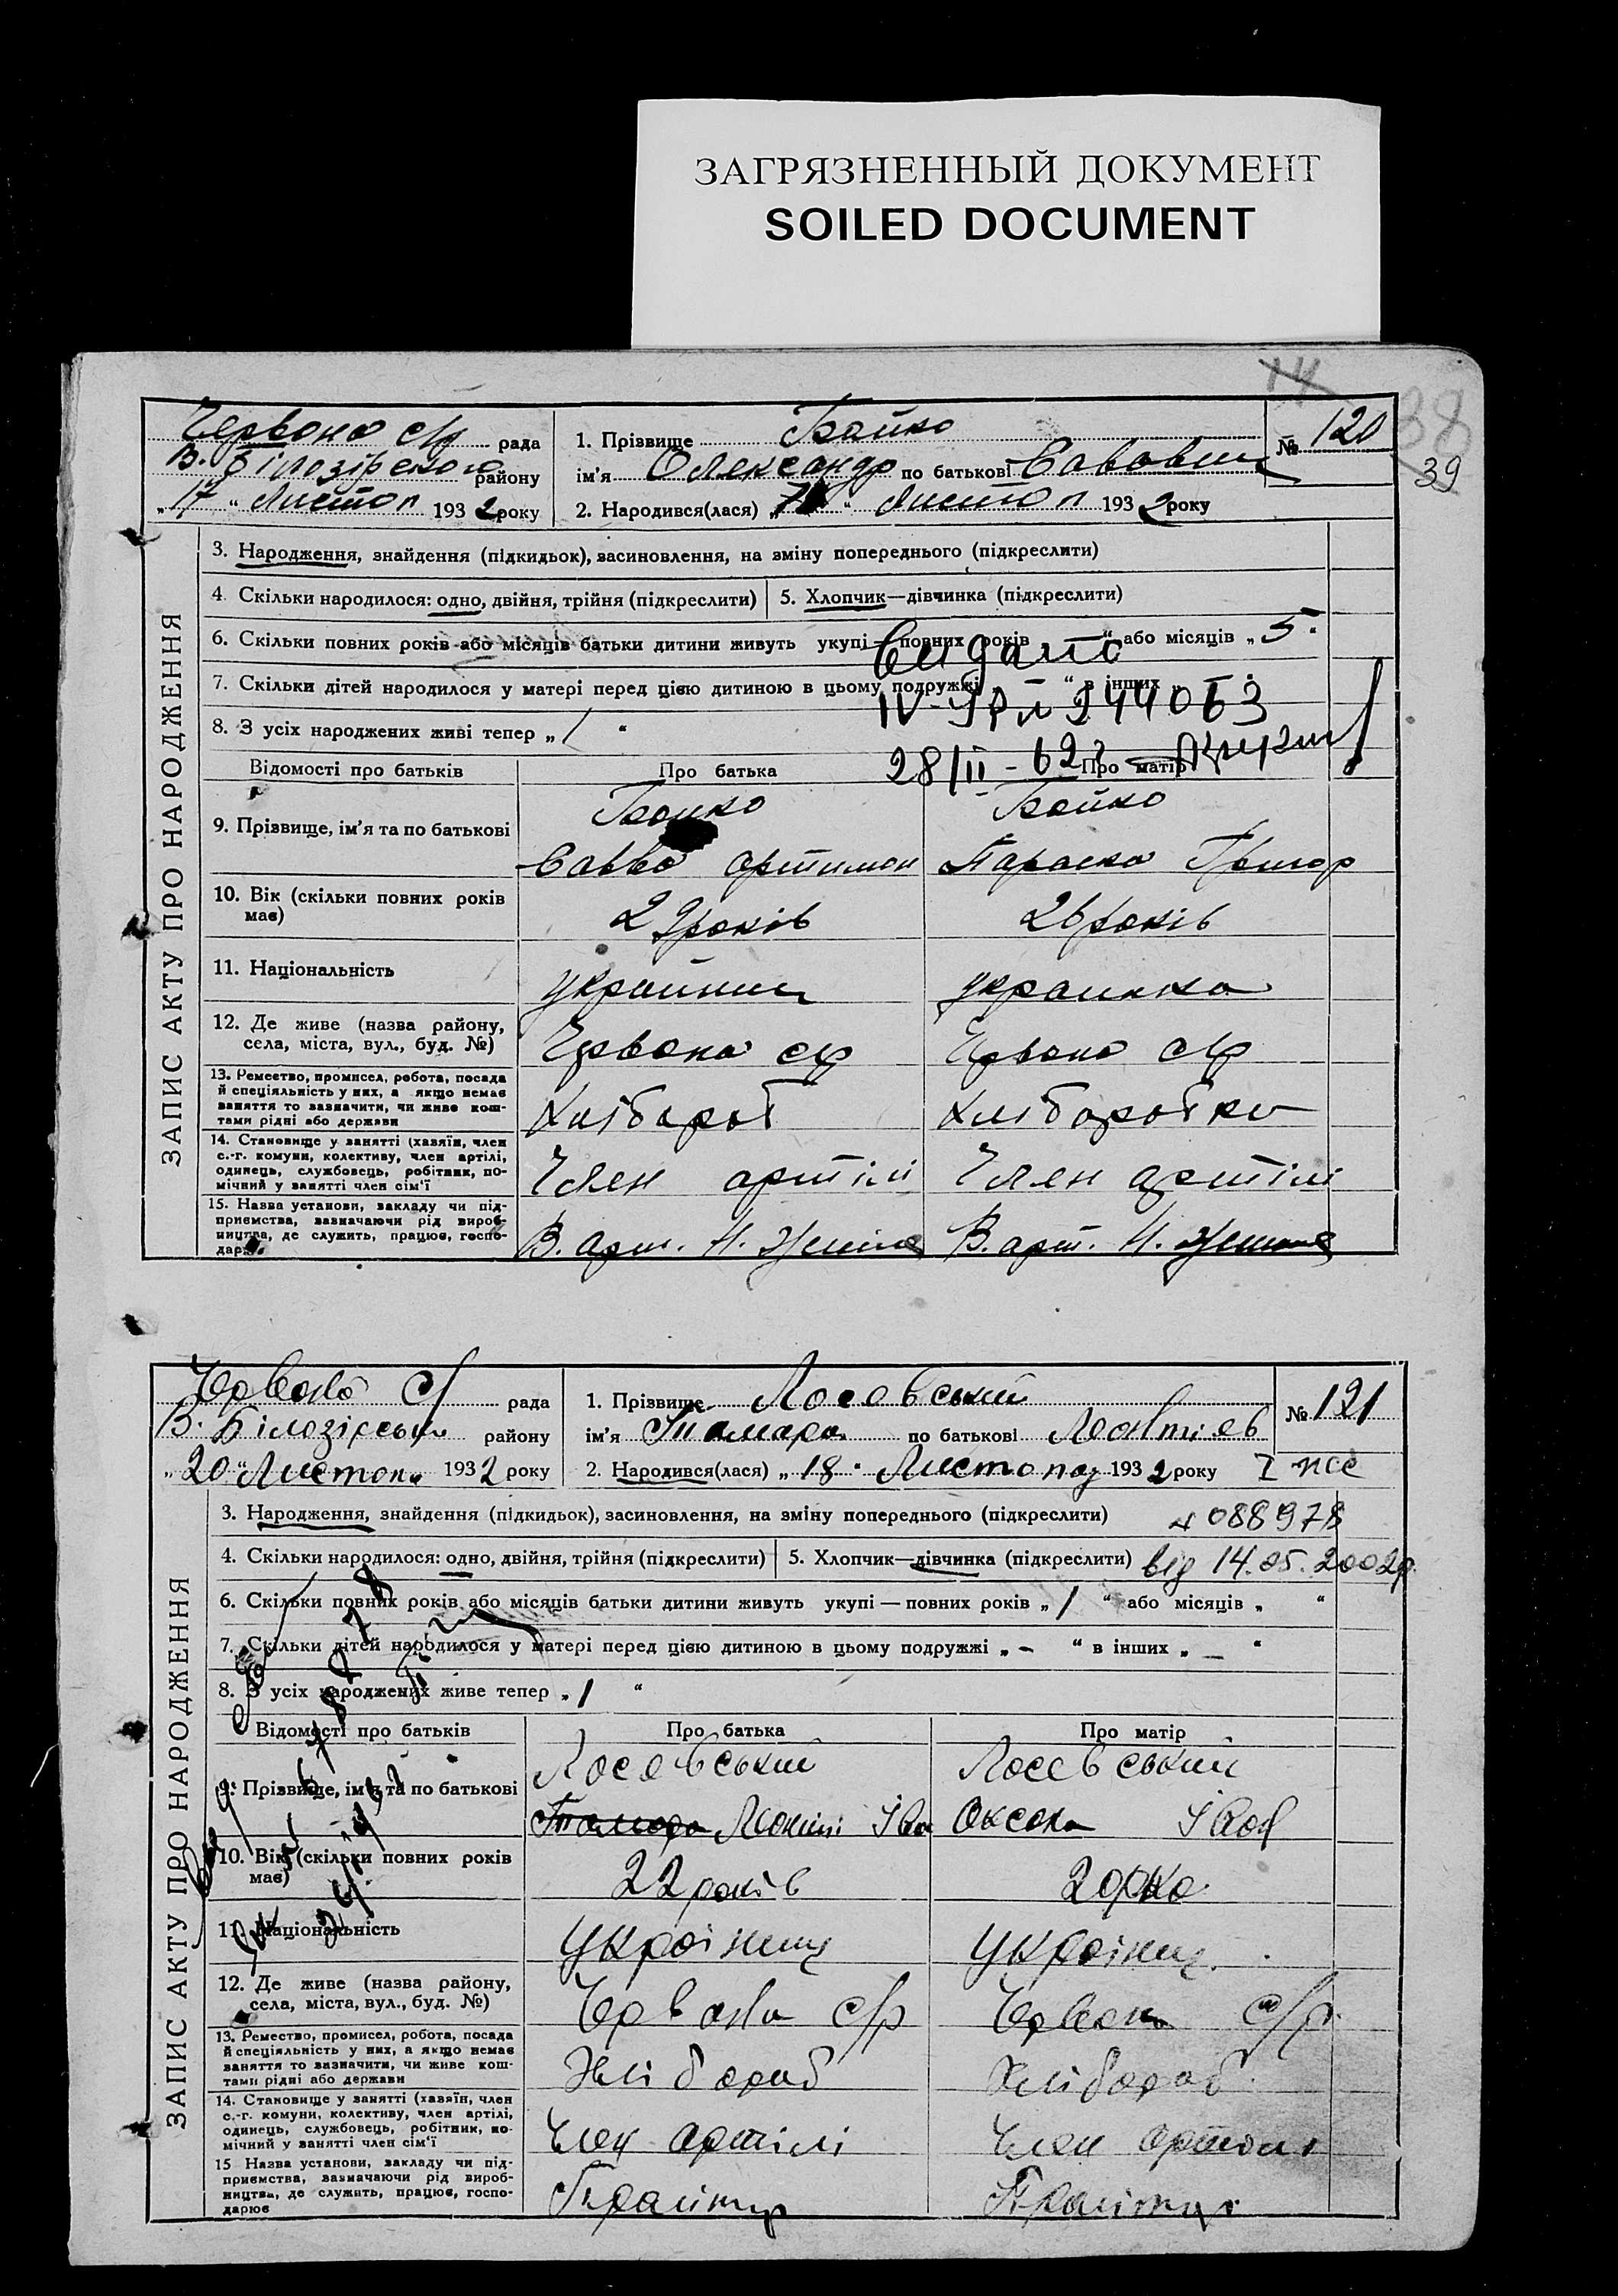 ЗАГРЯЗНЕННЫЙ ДОКУМЕНТ
SOILED DOCUMENT
14
38
39
Червона с/р рада
В. Білозірского району
„17“ Листоп 1932 року
1. Прізвище Бойко
ім'я Олександр по батькові Савович
2. Народився(лася) „7“ Листоп 1932 року
№ 120
ЗАПИС АКТУ ПРО НАРОДЖЕННЯ
3. Народження, знайдення (підкидьок), засиновлення, на зміну попереднього (підкреслити)
4. Скільки народилося: одно, двійня, трійня (підкреслити)
5. Хлопчик—дівчинка (підкреслити)
6. Скільки повних років або місяців батьки дитини живуть укупі — повних років „ “ або місяців „5“
7. Скільки дітей народилося у матері перед цією дитиною в цьому подружжі „—“ в інших „—“
8. З усіх народжених живі тепер „1“
Видано
28/II-62
Відомості про батьків Про батька Про матір
9. Прізвище, ім'я та по батькові
Бойко Бойко
Савва Артимон Параска Григор
10. Вік (скільки повних років має)
29 років 26 років
11. Національність
українець українка
12. Де живе (назва району, села, міста, вул., буд. №)
Червона с/р Червона с/р
13. Ремество, промисел, робота, посада й спеціяльність у них, а якщо немає заняття то зазначити, чи живе коштами рідні або держави
Хлібороб Хлібороб
14. Становище у занятті (хазяїн, член с.-г. комуни, колективу, член артілі, одинець, службовець, робітник, помічний у занятті член сім'ї
Член артілі Член артілі
15. Назва установи, закладу чи підприємства, зазначаючи рід виробництва, де служить, працює, господарює
В. арт. Н. В. арт. Н.
Червона с/р рада
В. Білозірськи району
„20“ Листопа 1932 року
1. Прізвище Лосовський
ім'я Тамара по батькові Леонтієв
2. Народився(лася) „18“ Листопад 1932 року
№ 121
088978
від 14.05.2002р.
ЗАПИС АКТУ ПРО НАРОДЖЕННЯ
3. Народження, знайдення (підкидьок), засиновлення, на зміну попереднього (підкреслити)
4. Скільки народилося: одно, двійня, трійня (підкреслити)
5. Хлопчик—дівчинка (підкреслити)
6. Скільки повних років або місяців батьки дитини живуть укупі — повних років „1“ або місяців „ “
7. Скільки дітей народилося у матері перед цією дитиною в цьому подружжі „—“ в інших „—“
8. З усіх народжених живе тепер „1“
Відомості про батьків Про батька Про матір
9. Прізвище, ім'я та по батькові
Лосовський Лосевський
Тамара Леонті Іва Оксана Іван
10. Вік (скільки повних років має)
22 років 20 рко
11. Національність
Українец Українец
12. Де живе (назва району, села, міста, вул., буд. №)
Червона с/р Червона с/р
13. Ремество, промисел, робота, посада й спеціяльність у них, а якщо немає заняття то зазначити, чи живе коштами рідні або держави
Хлібораб Хлібораб
14. Становище у занятті (хазяїн, член с.-г. комуни, колективу, член артілі, одинець, службовець, робітник, помічний у занятті член сім'ї
Член артілі Член артілі
15 Назва установи, закладу чи підприємства, зазначаючи рід виробництва, де служить, працює, господарює